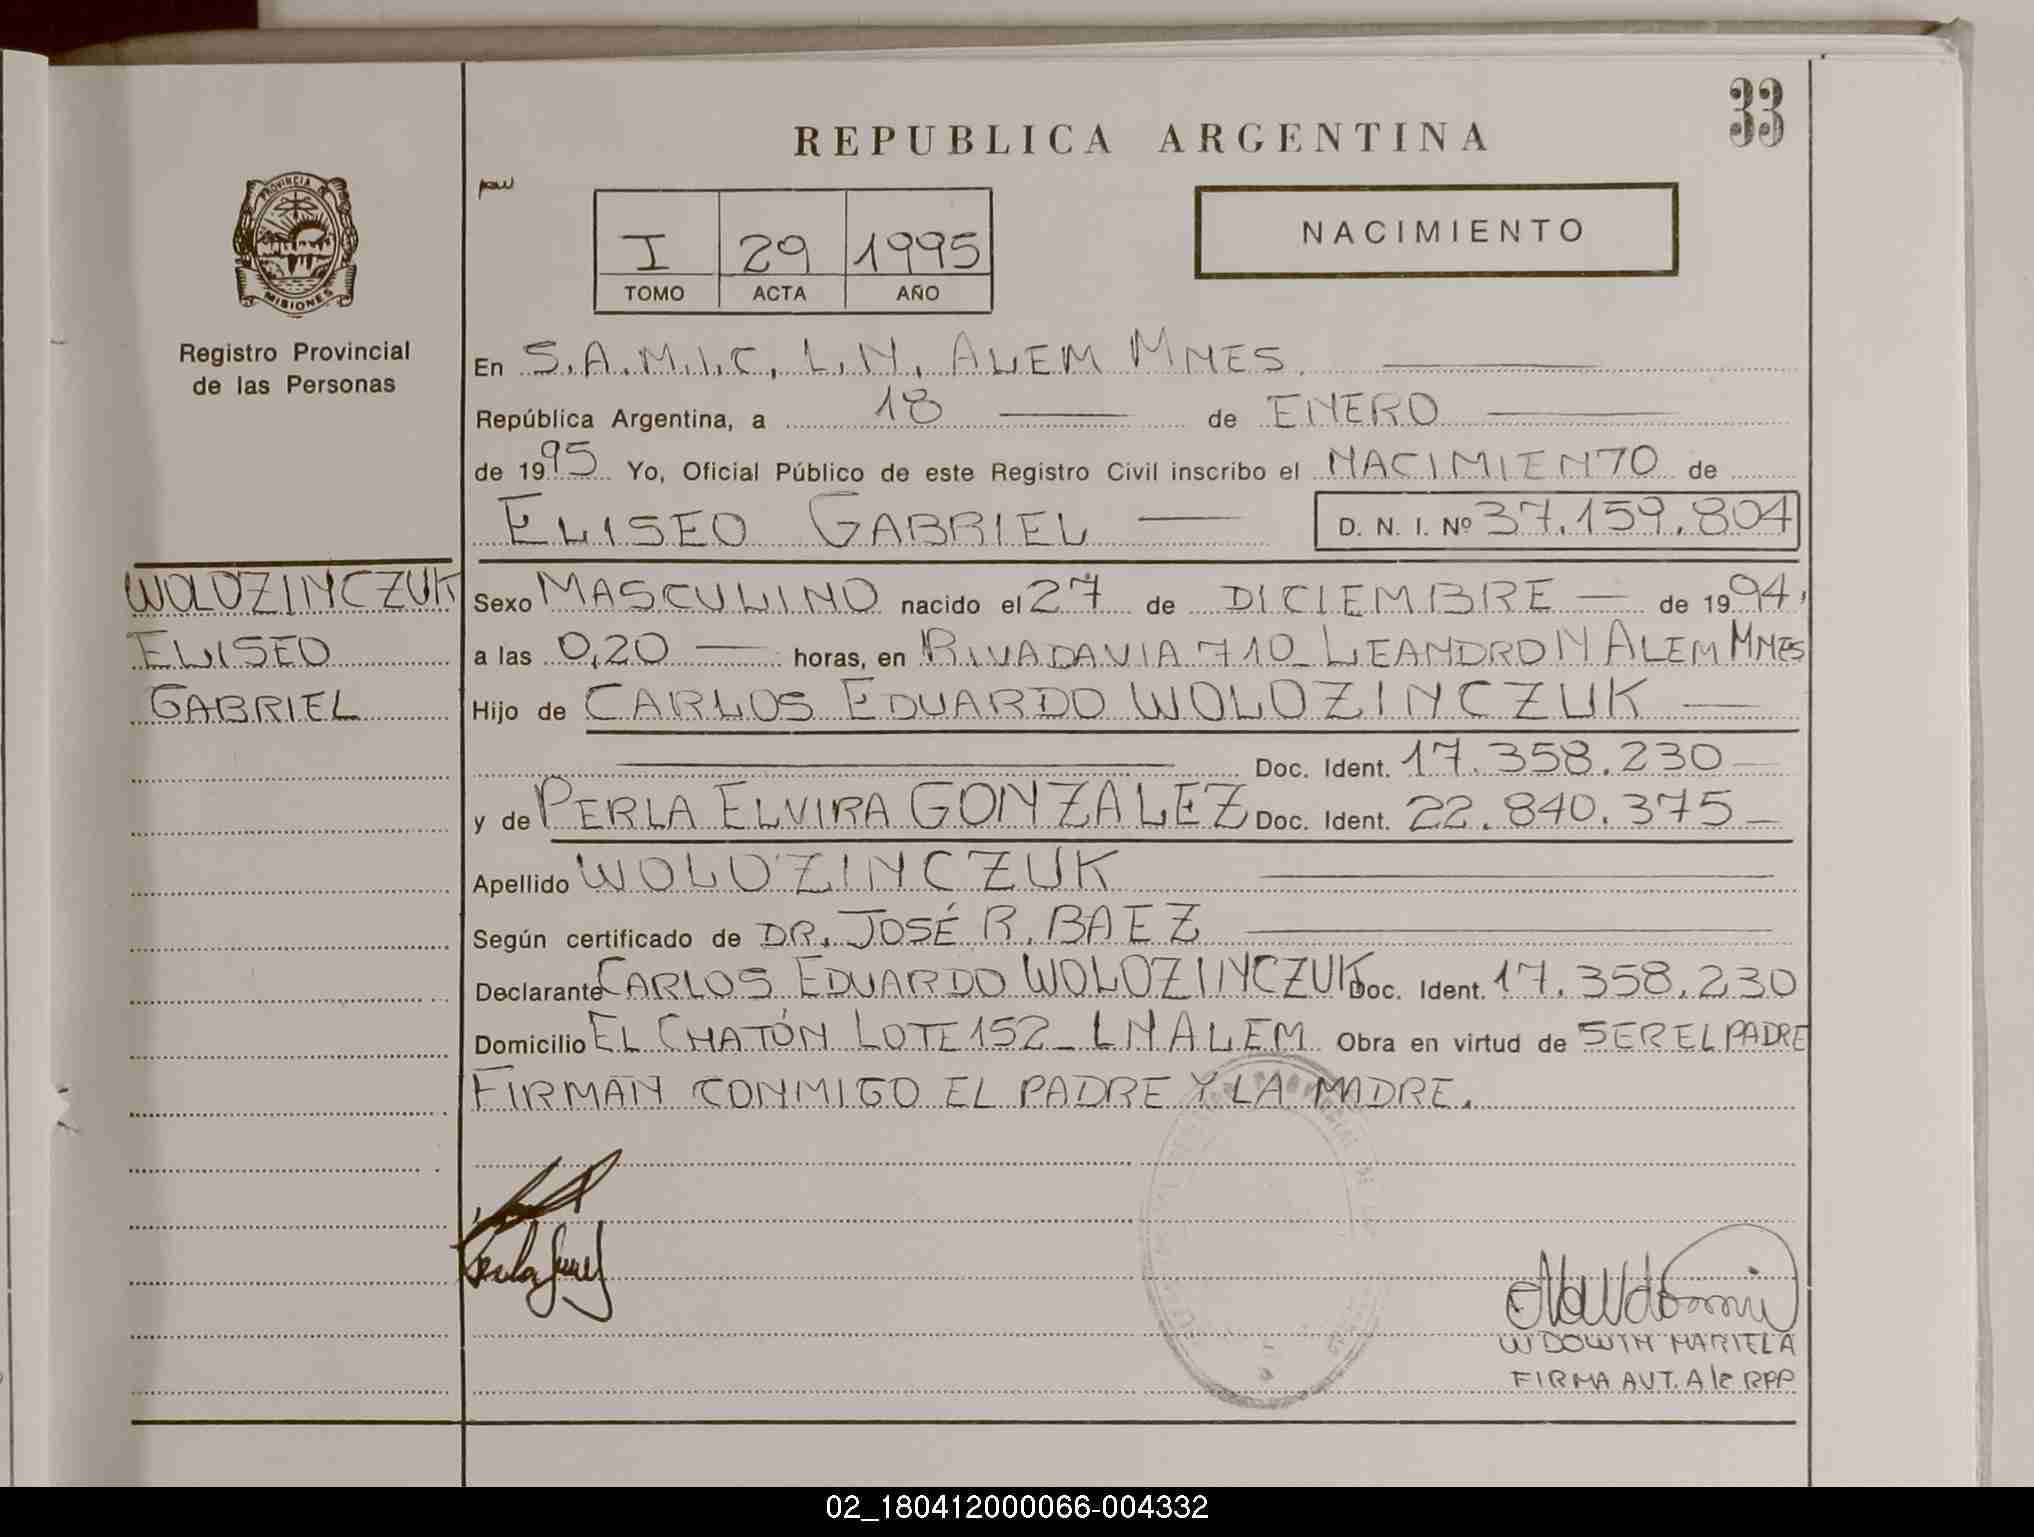 33
REPUBLICA ARGENTINA
PROVINCIA DE
MISIONES
Registro Provincial
de las Personas
I 29 1995
TOMO ACTA AÑO
NACIMIENTO
En S.A.M.I.C. L.N. ALEM MNES.
República Argentina, a 18 de ENERO
de 1995 Yo, Oficial Público de este Registro Civil inscribo el NACIMIENTO de
ELISEO GABRIEL D. N. I. Nº 37.159.804
WOLOZINCZUK
ELISEO
GABRIEL
Sexo MASCULINO nacido el 27 de DICIEMBRE de 1994,
a las 0,20 horas, en RIVADAVIA 710_ LEANDRO N ALEM MNES
Hijo de CARLOS EDUARDO WOLOZINCZUK
Doc. Ident. 17.358.230
y de PERLA ELVIRA GONZALEZ Doc. Ident. 22.840.375
Apellido WOLOZINCZUK
Según certificado de DR. JOSÉ R. BAEZ
Declarante CARLOS EDUARDO WOLOZINCZUK Doc. Ident. 17.358.230
Domicilio EL CHATÓN LOTE 152_ L N ALEM Obra en virtud de SER EL PADRE
FIRMAN CONMIGO EL PADRE Y LA MADRE.
WDOWIN MARIELA
FIRMA AUT. A/C RPP
02_180412000066-004332